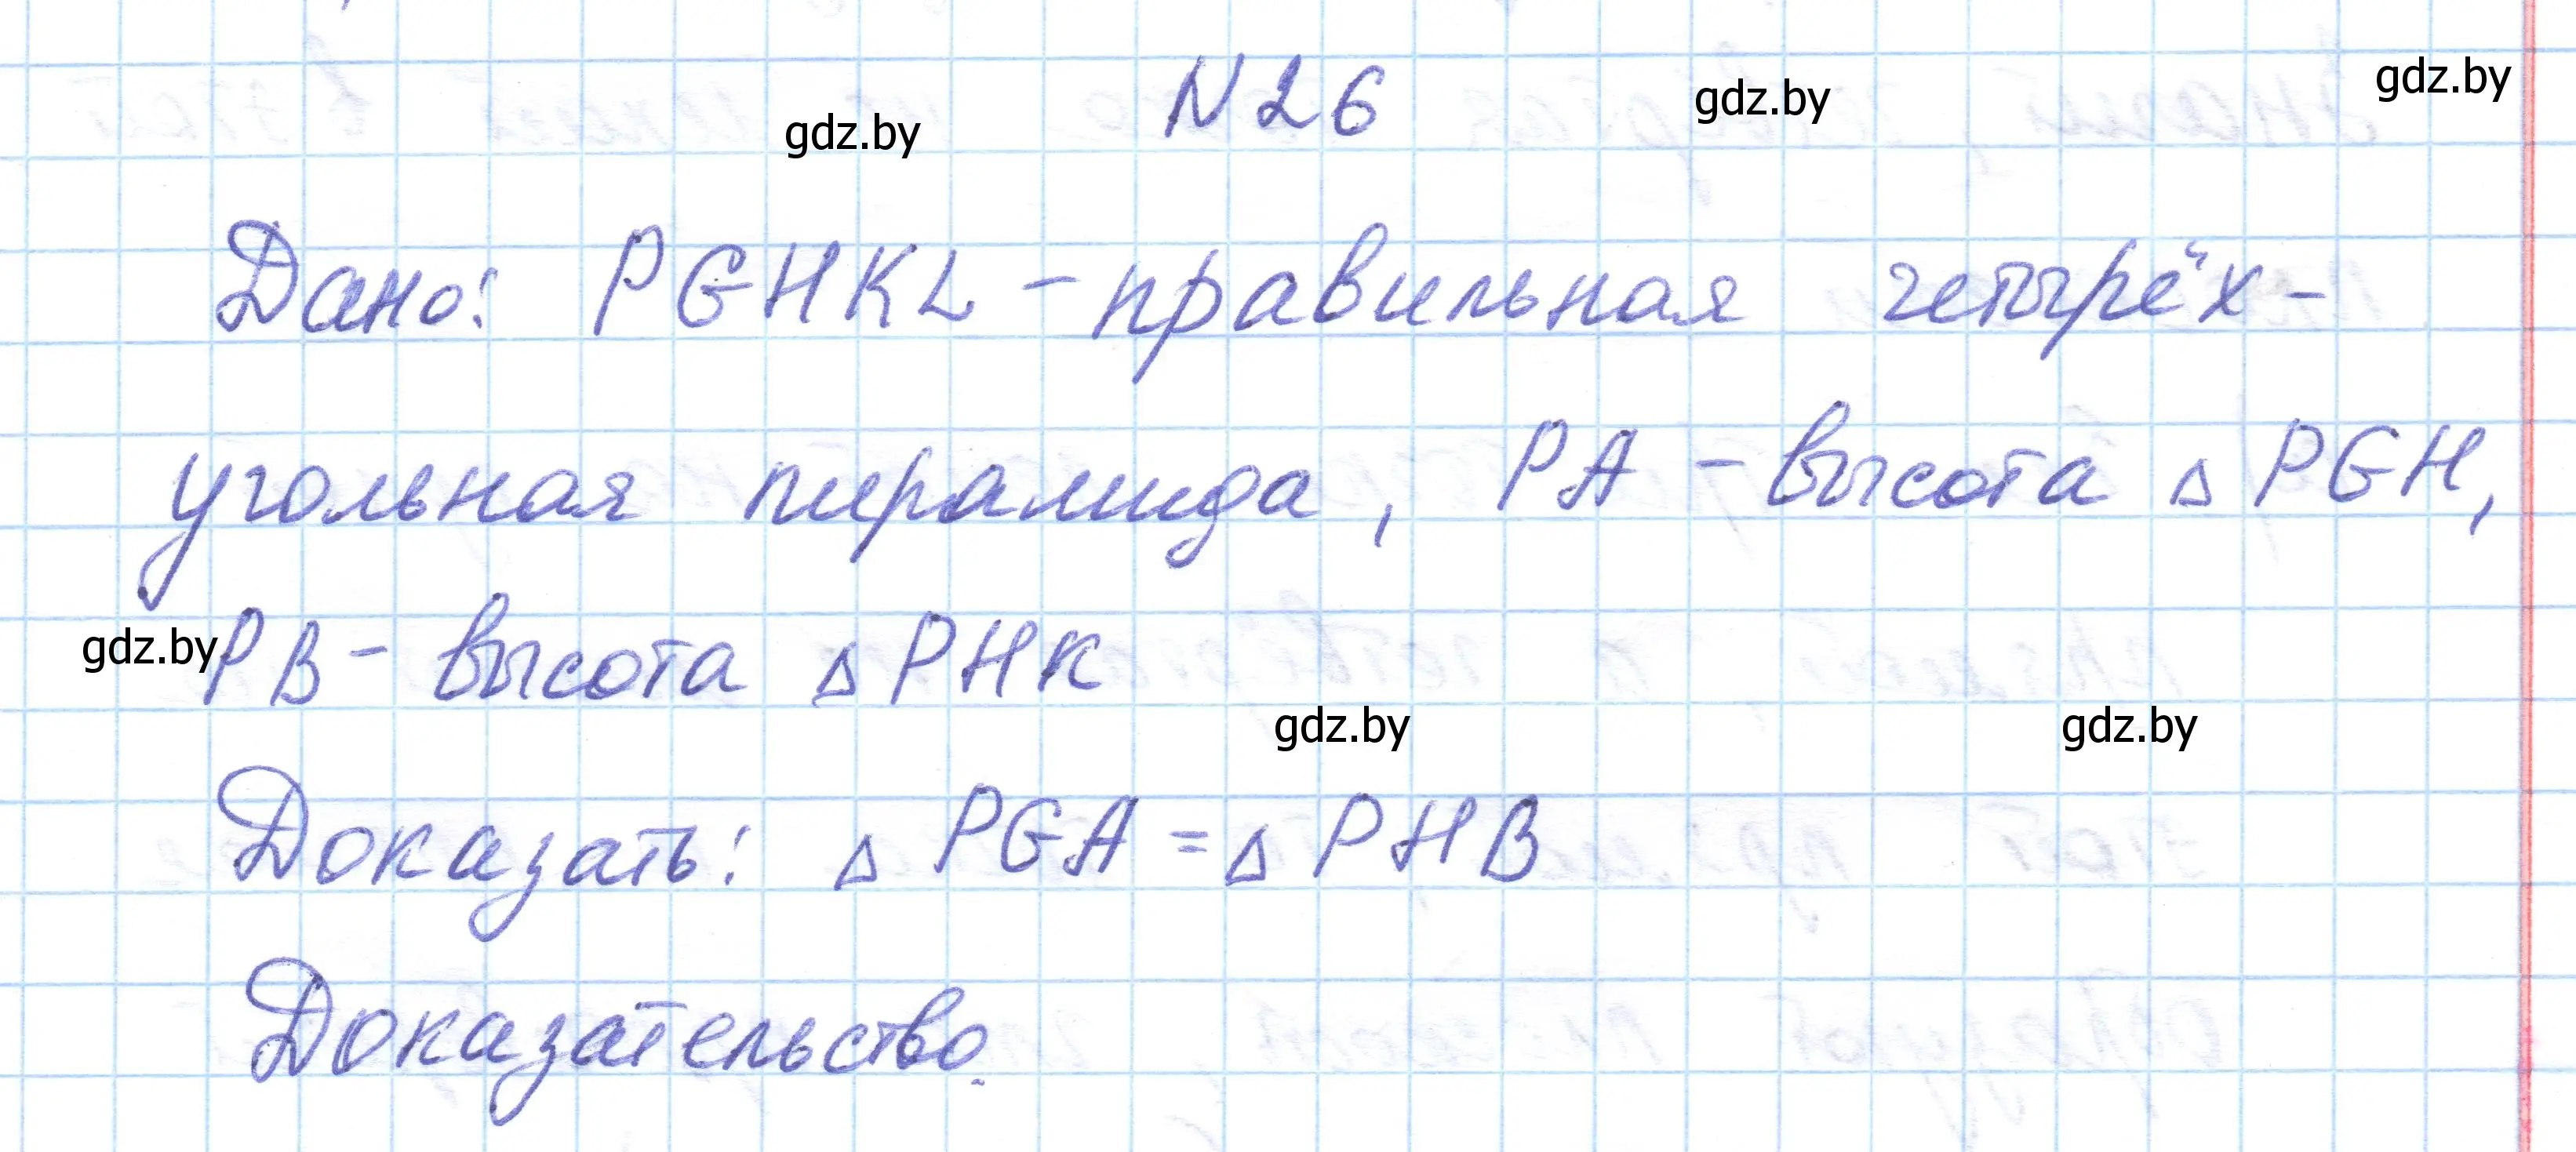 gdz.by
N26 gdz.by
gdz.by
Дано: PGHKL - правильная четырёх-
угольная пирамида, PA - высота ▵ PGH,
gdz.by PB - высота ▵ PHK
gdz.by gdz.by
Доказать: ▵ PGA = ▵ PHB
Доказательство.